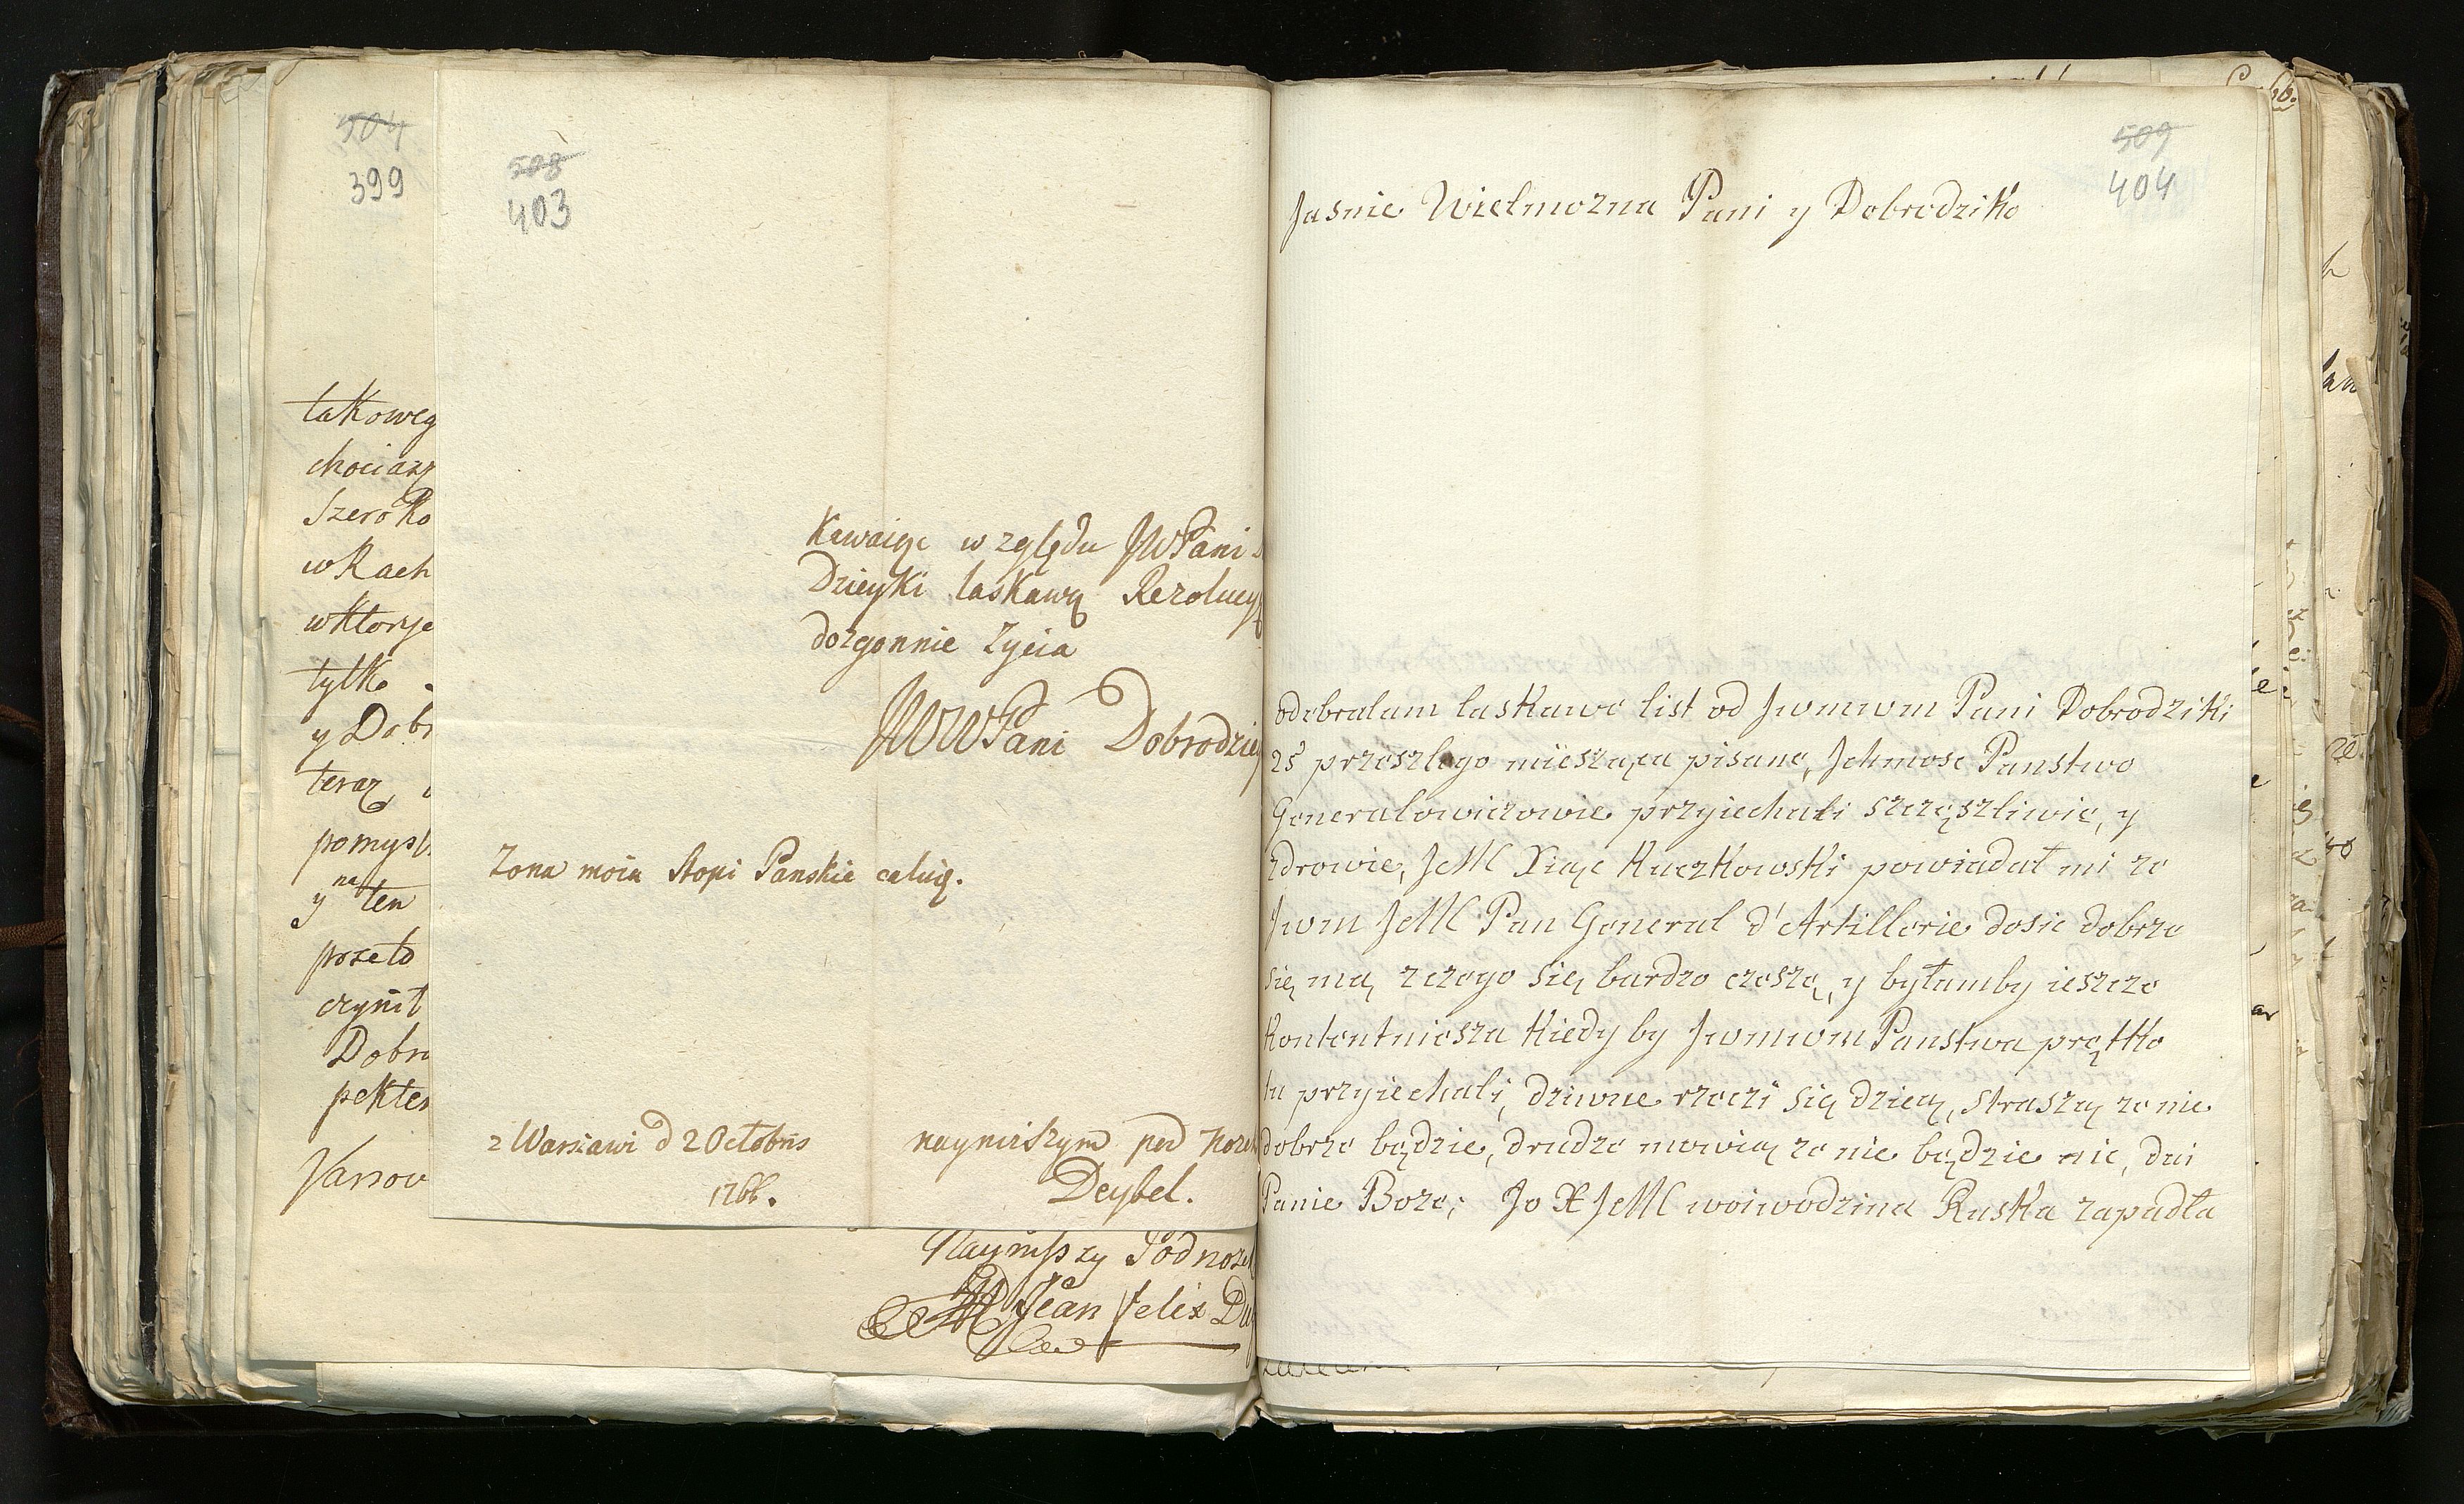 504
399
takoweg
chociaz
Szeroko
w Rach
w ktorye
tylko
y Dobr
teraz
pomysl
y na ten
poseto
czynit
Dobro
pekter
Varsov
508
403
Kawaiąc względu JWPani
Dzieyki laskawą Rezolucyą
dozgonnie Zycia
JWWPani Dobrodziey
Zona moia Stopi Panskie caluią.
z Warszawi d 2 Octobris
1766.
nayniższym pod noże
Deybel.
Nayniższy Podnoże
Jean Felix Du
509
404
Jasnie Wielmozna Pani y Dobrodziko
odebralam laskawe list od Jwmwm Pani Dobrodziki
25 przeszlego miesząca pisane, Jchmosc Panstwo
Generalowiczowie przyiechali szczęszliwie, y
zdrowie, JeM Xiąc Kuczkowski powiadał mi ze
Jwm JeM Pan General d'Artillerie dosic dobrze
się ma, z czego się bardzo czesze, y byłamby ieszcze
kontentniesza kiedy by Jwmwm Panstwa prętko
tu przyiechali, dziwne rzeczi się dzieą, straszą ze nie
dobrze będzie, drudze mowią ze nie będzie nic, dai
Panie Boze; Jo X JeM woiwodzina Ruska zapadła